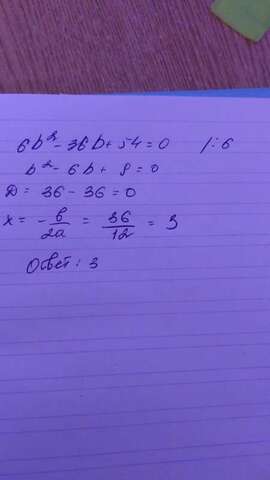 6b² - 36b + 54 = 0 /:6
b² - 6b + 9 = 0
D = 36 - 36 = 0
x = -b/2a = 36/12 = 3
Ответ: 3